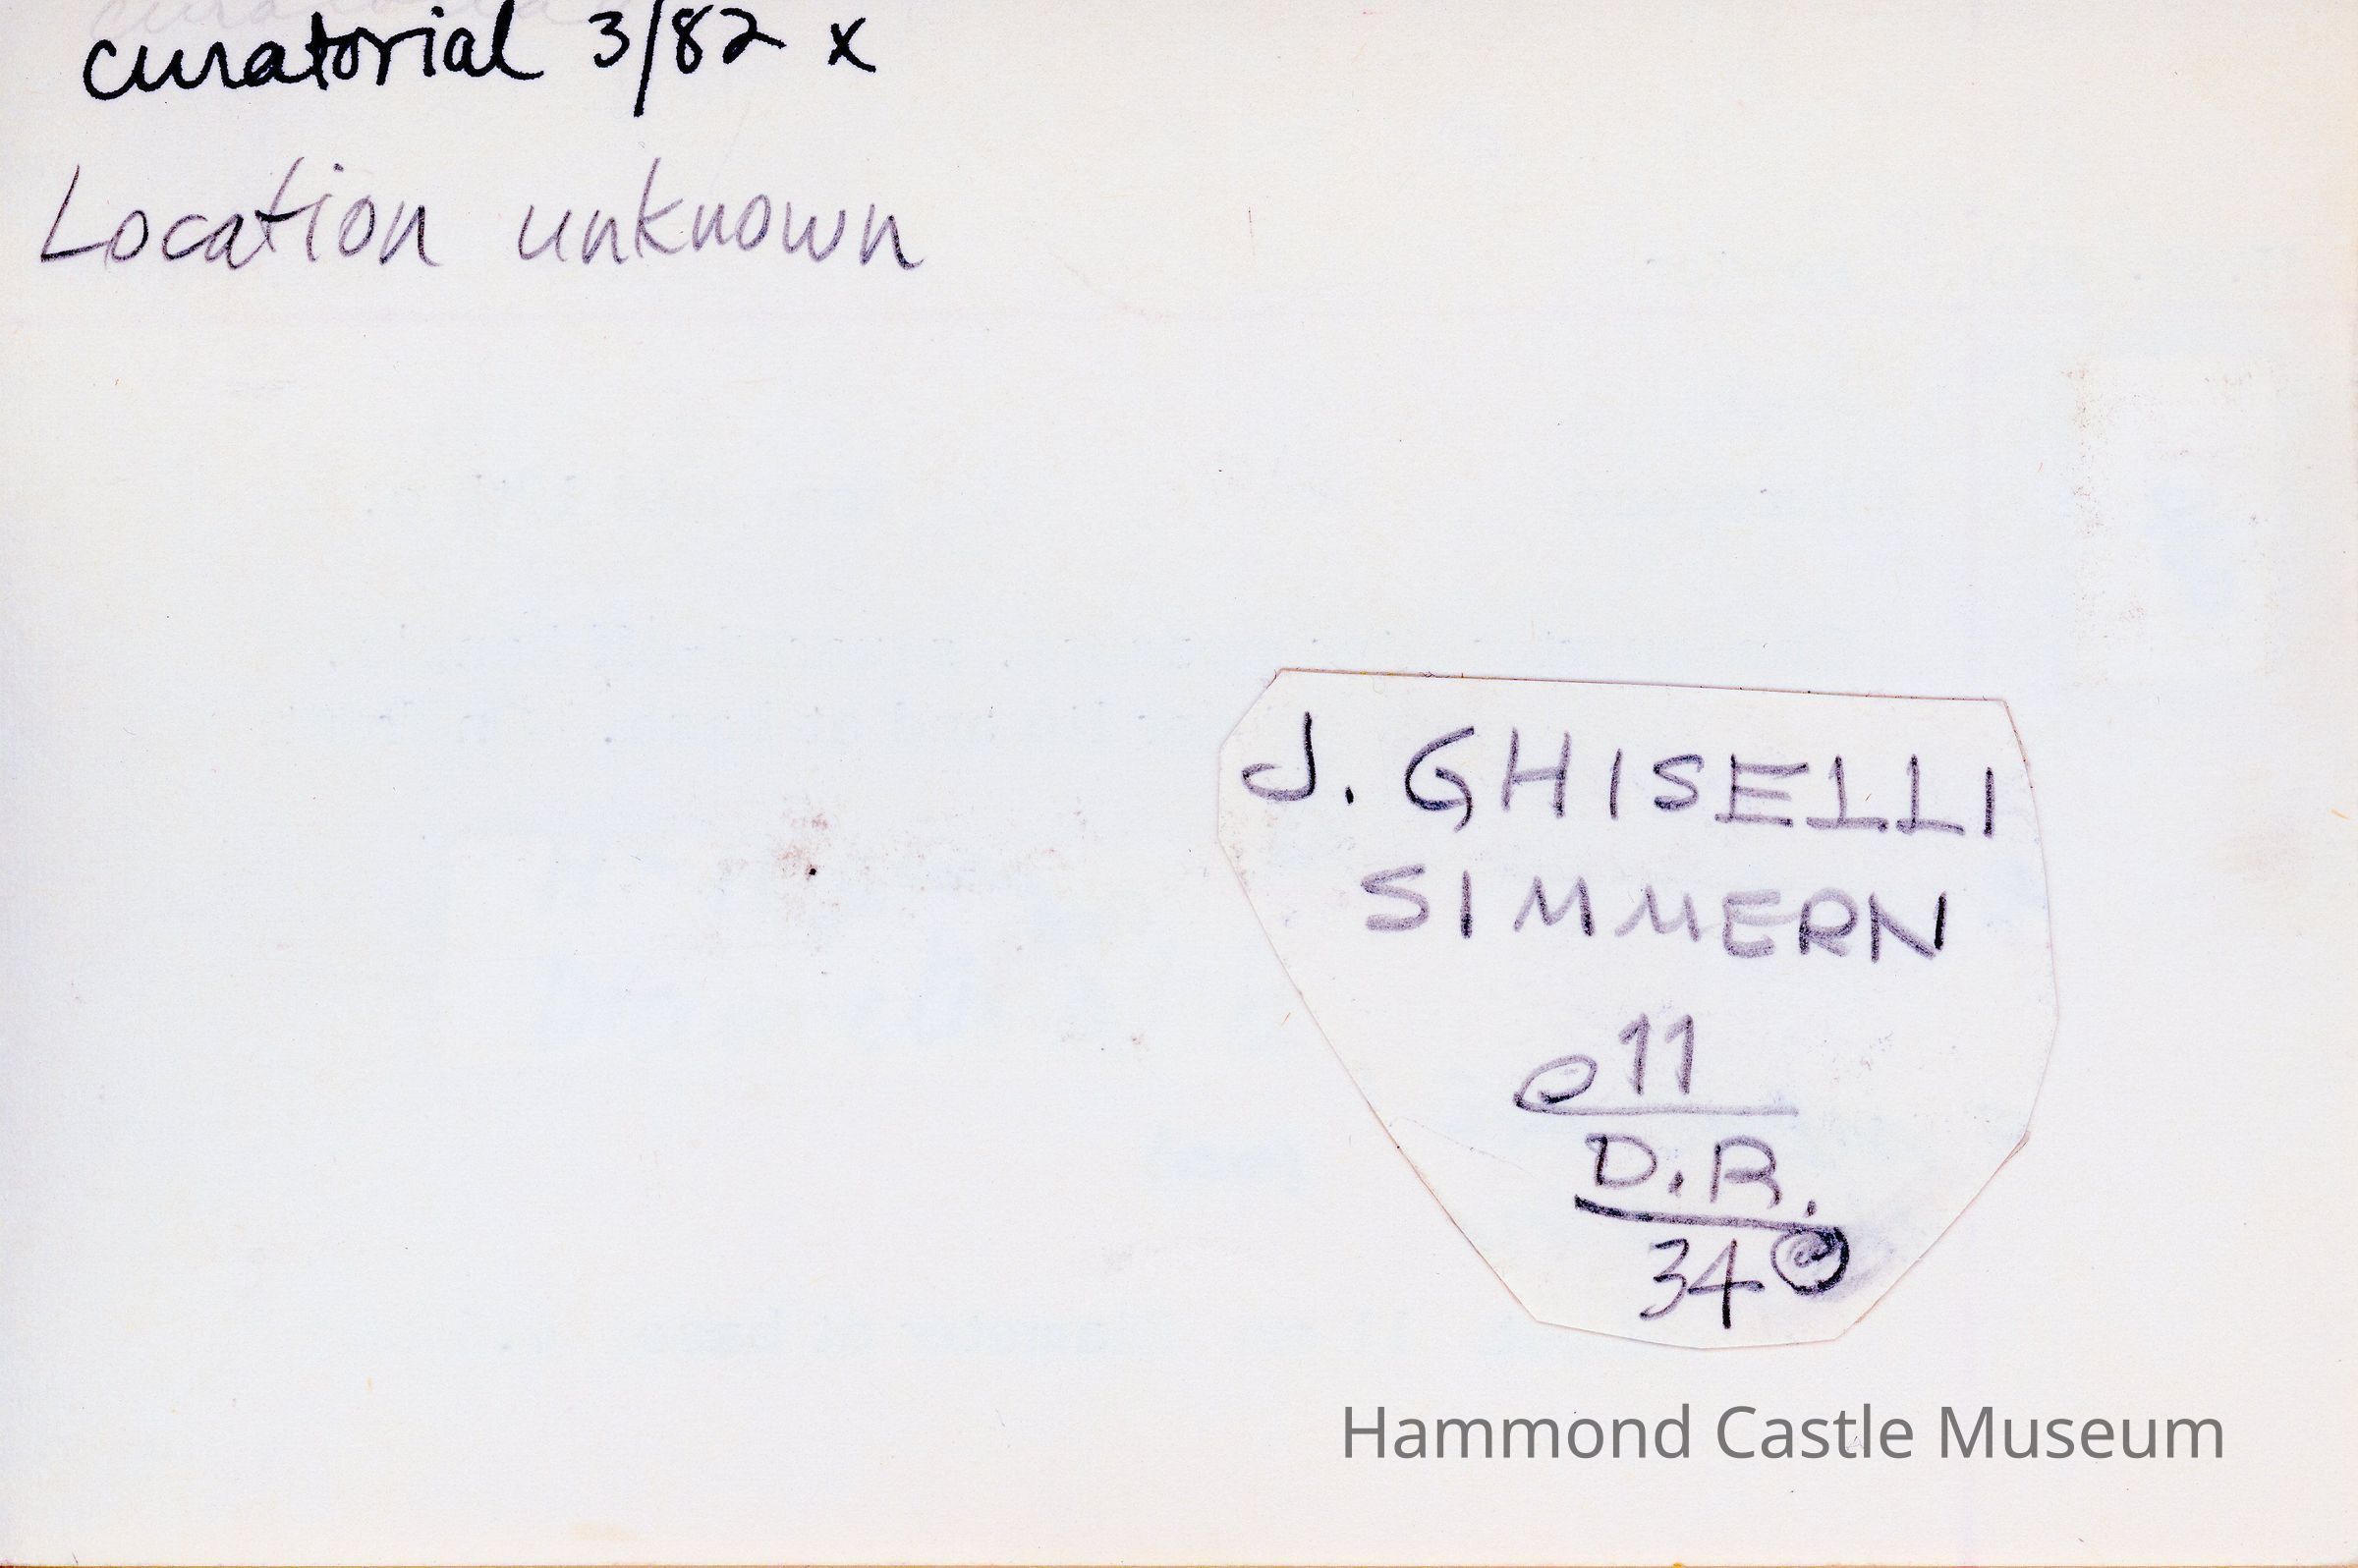 curatorial 3/82 x
Location unknown
J. GHISELLI
SIMMERN
11
D.R.
34
Hammond Castle Museum